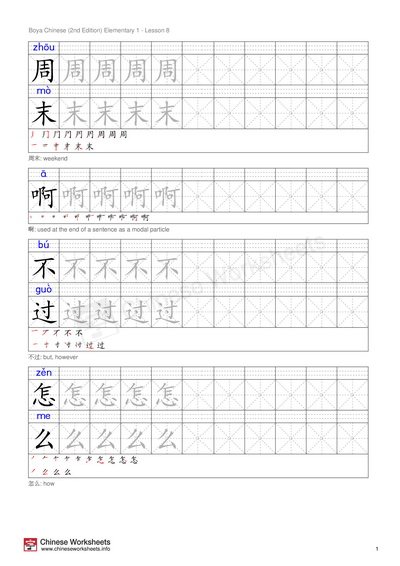 Boya Chinese (2nd Edition) Elementary 1 - Lesson 8
zhōu
周 周 周 周 周
mò
末 末 末 末 末
周末: weekend
ā
啊 啊 啊 啊 啊
啊: used at the end of a sentence as a modal particle
bú
不 不 不 不 不
guò
过 过 过 过 过
不过: but, however
zěn
怎 怎 怎 怎 怎
me
么 么 么 么 么
怎么: how
Chinese Worksheets
www.chineseworksheets.info
1